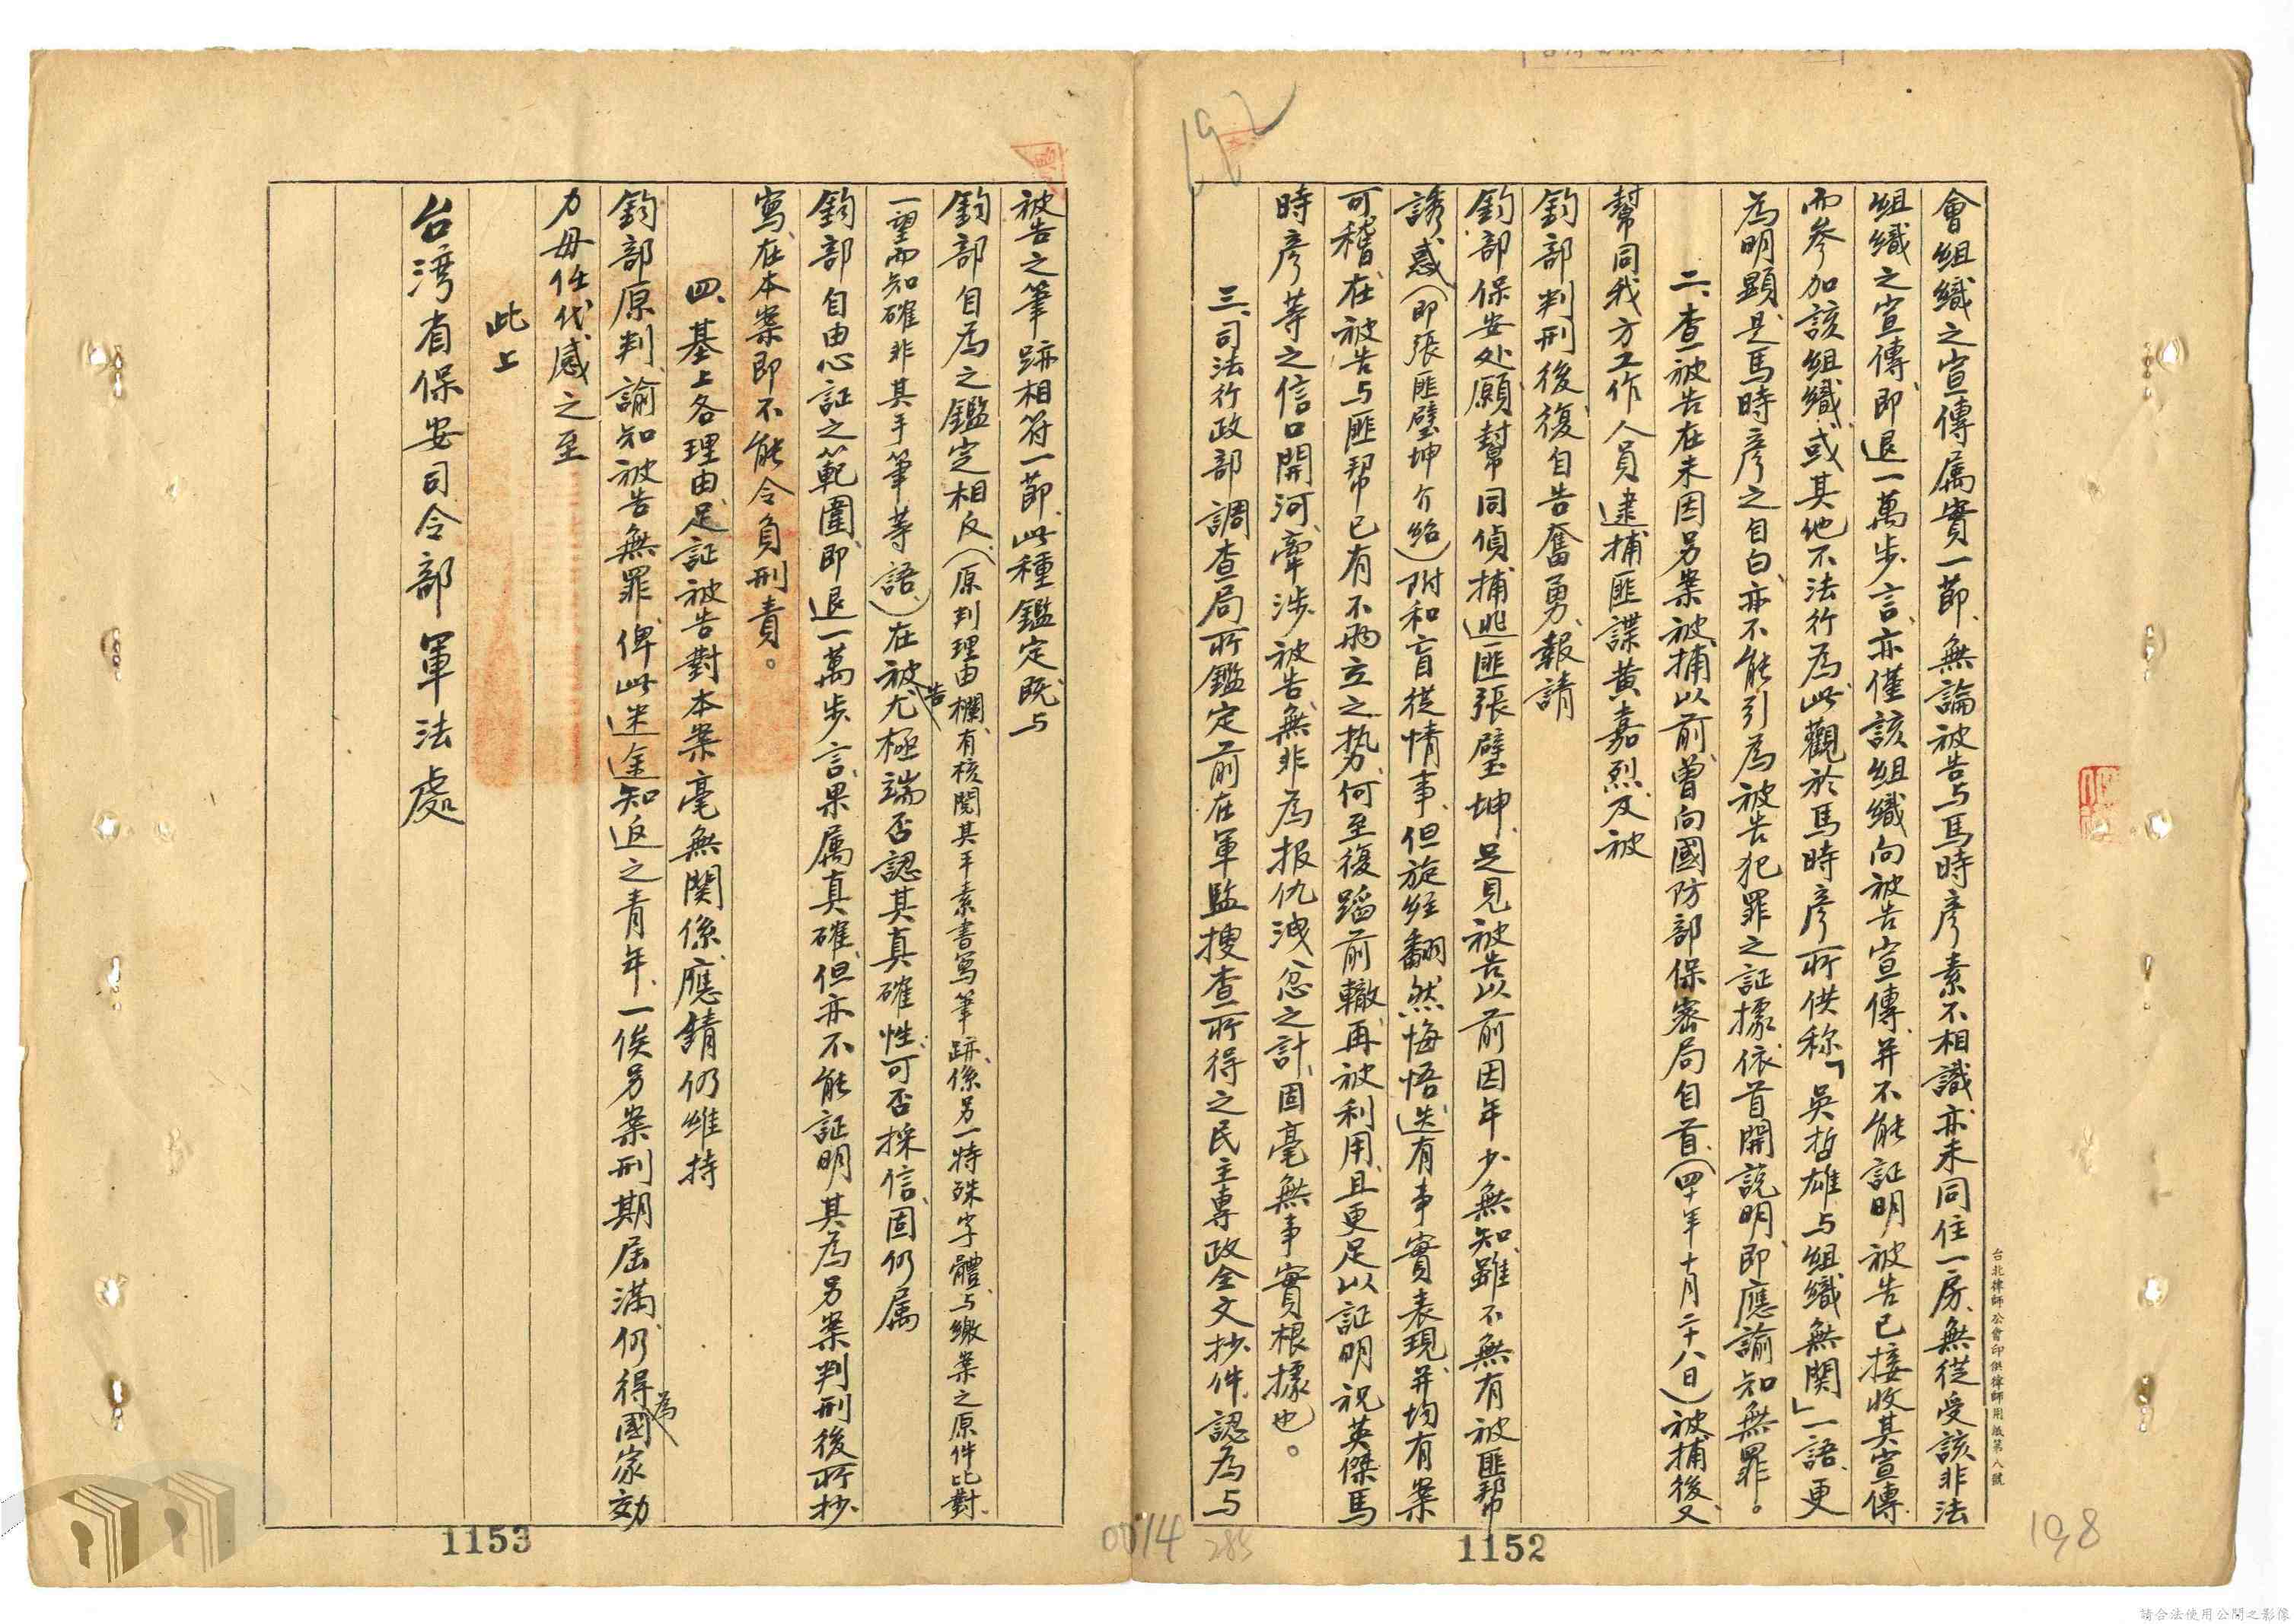 會組織之宣傳屬實一節、無論被告与馬時彥素不相識、亦未同住一房、無從受該非法
組織之宣傳、即退一萬步言、亦僅該組織向被告宣傳、并不能証明被告已接收其宣傳
而參加該組織、或其他不法行為、此觀於馬時彥所供称「吳哲雄与組織無関」一語、更
為明顯、是馬時彥之自白、亦不能引為被告犯罪之証據、依首開説明、即應諭知無罪。
二、查被告在未因另案被捕以前、曾向國防部保密局自首、(四十年十月二十八日)被捕後、又
幫同我方工作人員逮捕匪諜黃嘉烈、及被
鈞部判刑後、復自告奮勇、報請
鈞部保安处願幫同偵捕逃匪張璧坤、足見被告以前因年少無知、雖不無有被匪幫
誘惑(即張匪璧坤介紹)附和盲從情事、但旋經翻然悔悟、迭有事實表現、并均有案
可稽、在被告与匪帮已有不兩立之势、何至復蹈前轍、再被利用、且更足以証明祝英傑馬
時彥等之信口開河、牽涉被告、無非為报仇洩忿之計、固毫無事實根據也。
三、司法行政部調查局所鑑定前在軍監搜查所得之民主專政全文抄件、認為与
被告之筆跡相符一節、此種鑑定既与
鈞部自為之鑑定相反、(原判理由欄、有核閱其平素書寫筆跡、係另一特殊字體、与繳案之原件比對、
一望而知確非其手筆等語、)在被告尤極端否認其真確性、可否採信、固仍属
鈞部自由心証之範圍、即退一萬步言、果属真確、但亦不能証明其為另案判刑後所抄
寫、在本案即不能令負刑責。
四、基上各理由、足証被告對本案毫無関係、應請仍維持
鈞部原判、諭知被告無罪、俾此迷途知返之青年、一俟另案刑期屆滿、仍得為國家効
力毋任代感之至
此上
台湾省保安司令部軍法處
台北律師公會印供律師用紙第八號
192
198
0014
285
1152
1153
請合法使用公開之影像